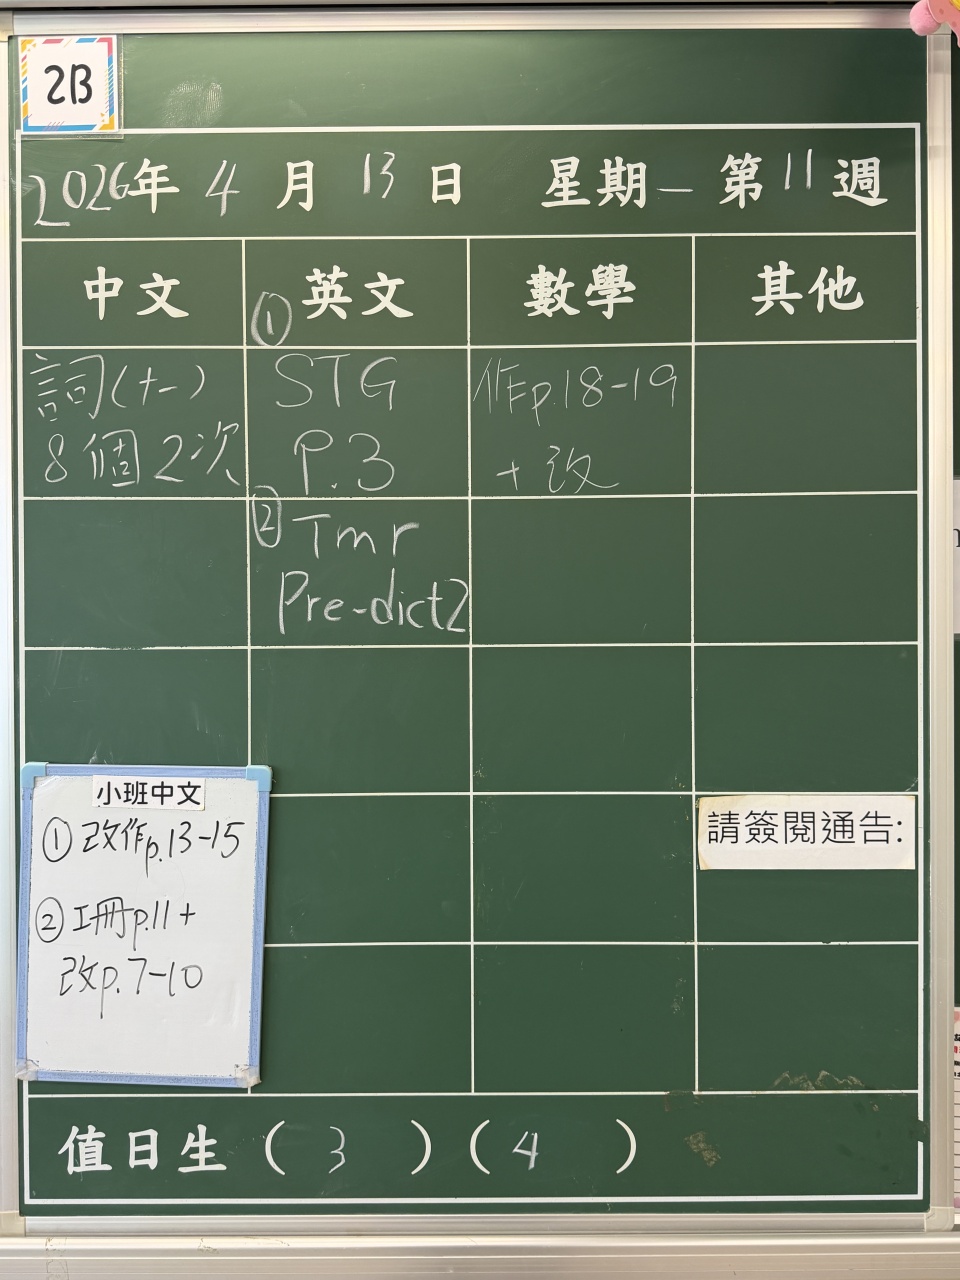 2B
2026年 4月 13日 星期一 第11週
中文 英文 數學 其他
詞(十一)
8個2次
①
STG
P.3
② Tmr
Pre-dict2
作p.18-19
+改
小班中文
① 改作p.13-15
② 工冊p.11+
改p.7-10
請簽閱通告:
值日生 ( 3 ) ( 4 )